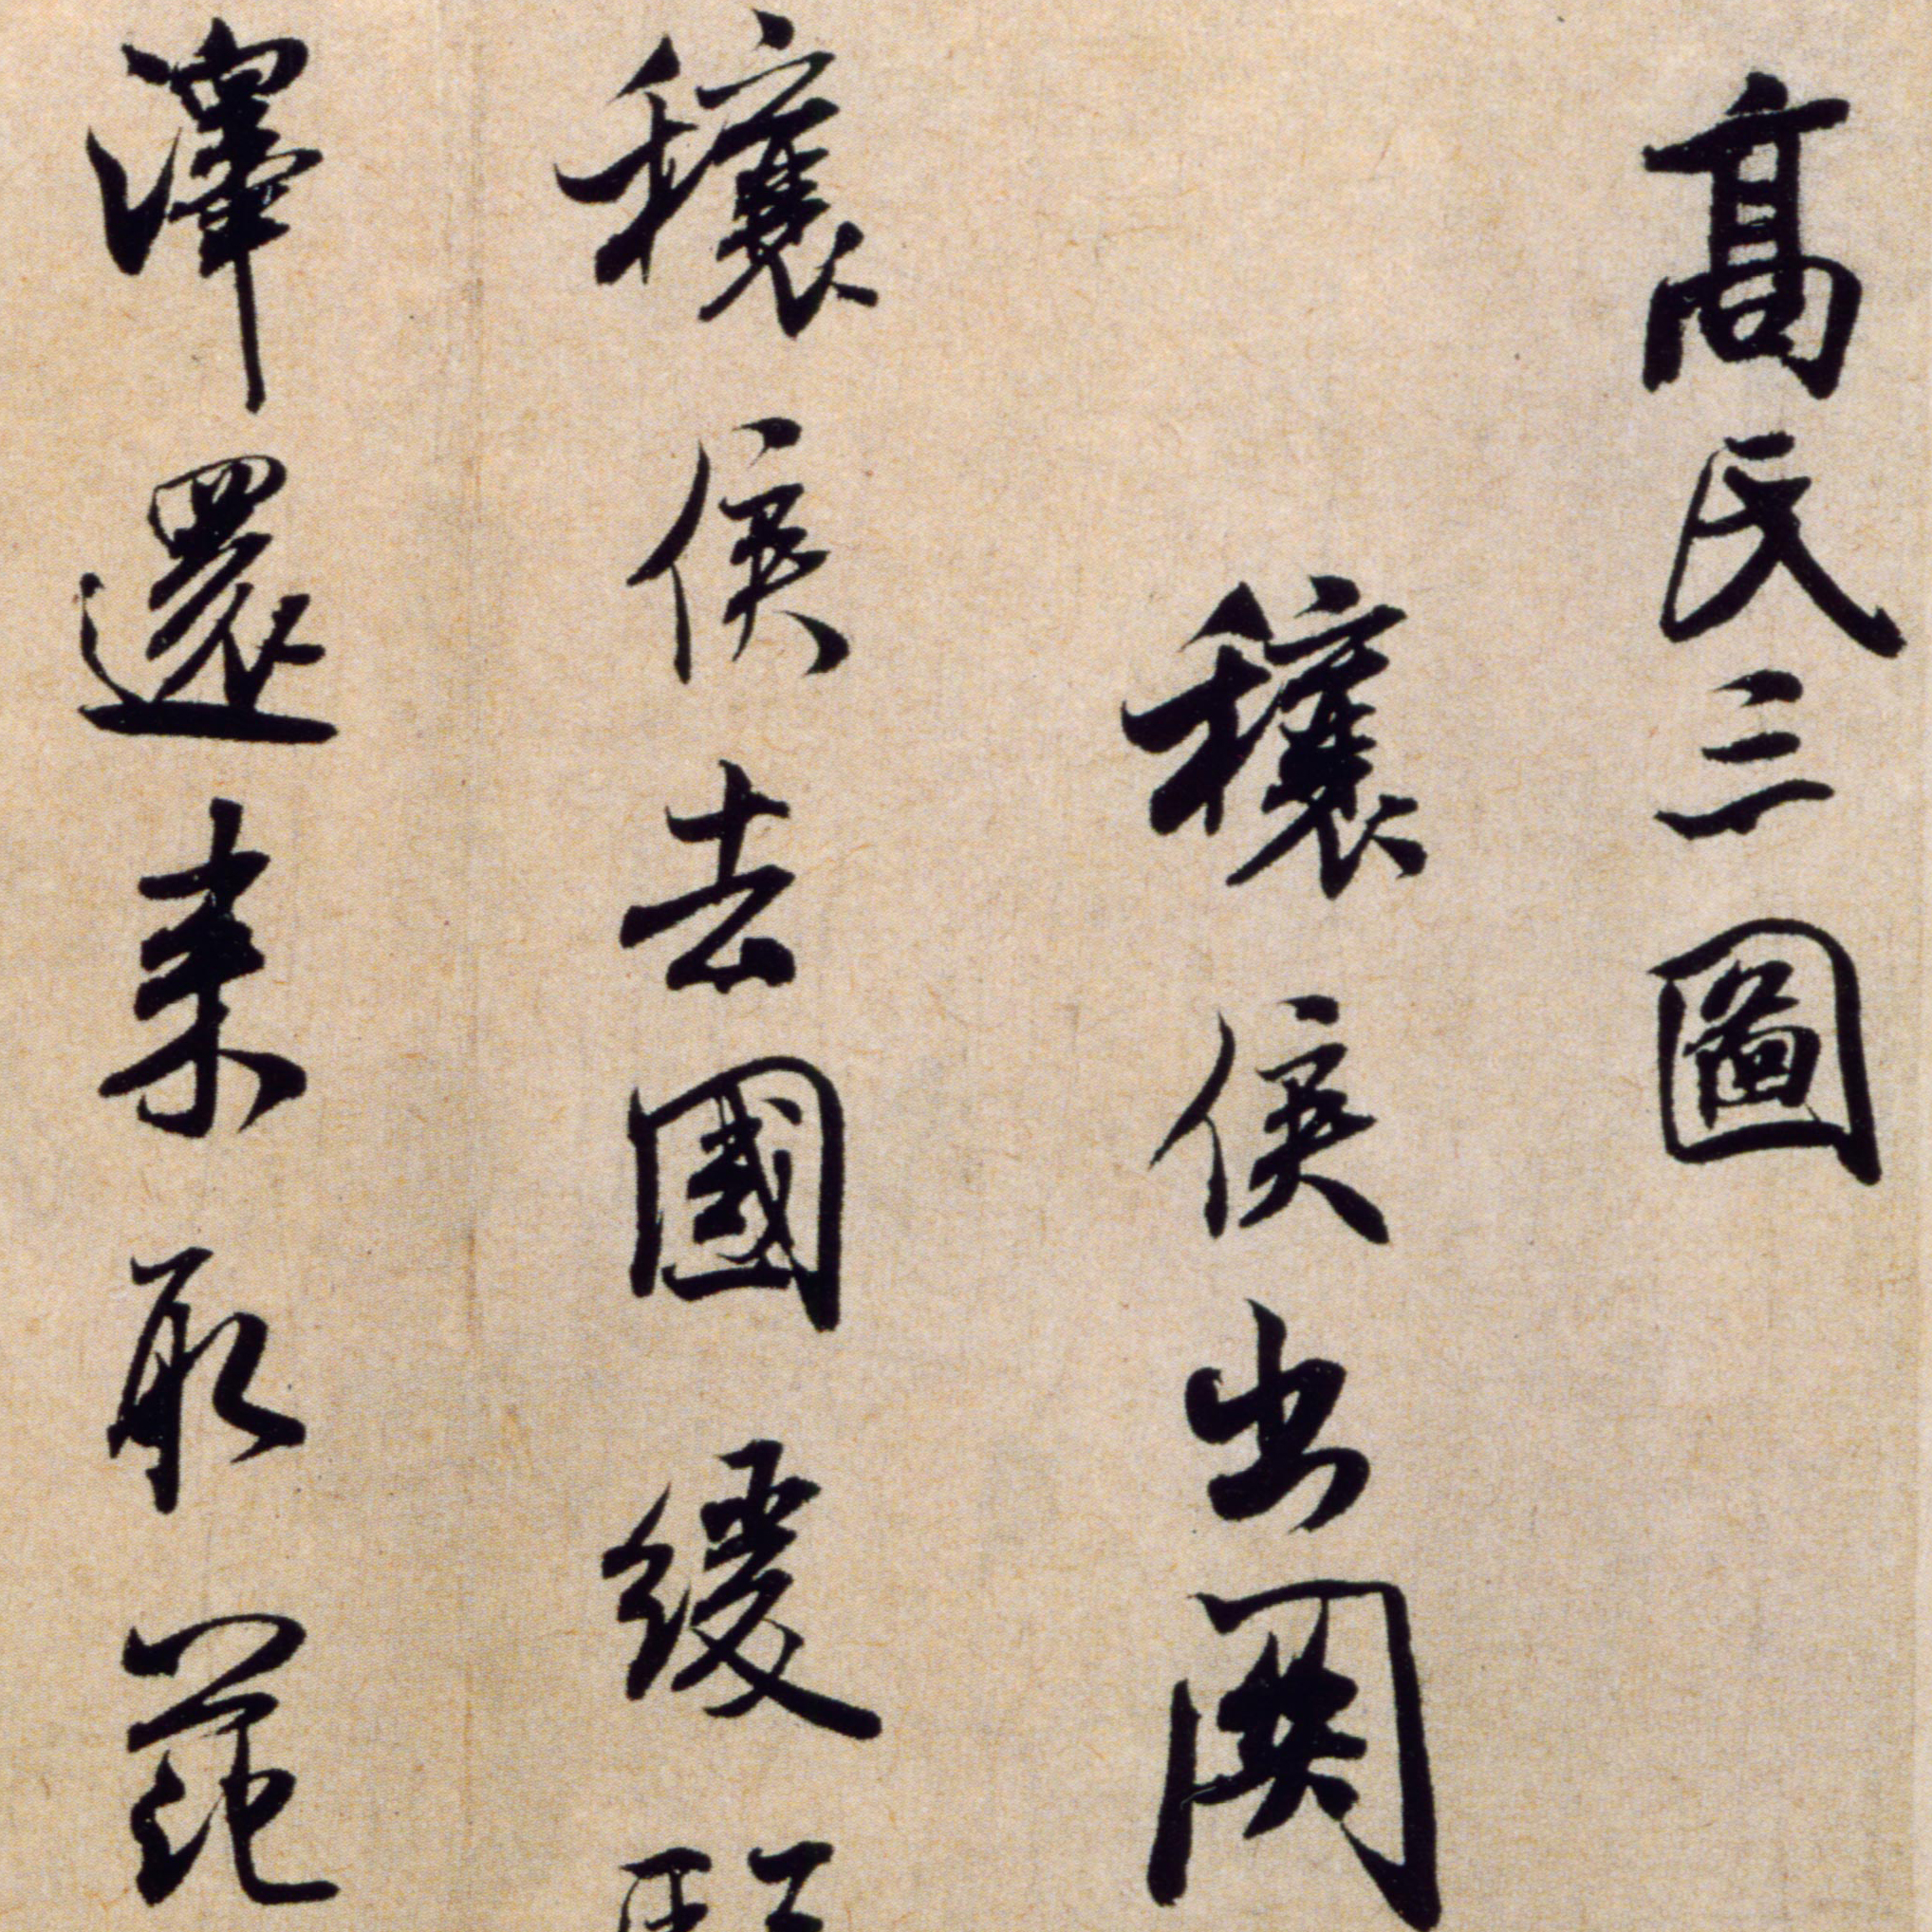 高氏三圖
穰侯出關
穰侯去國緩
澤還来取范